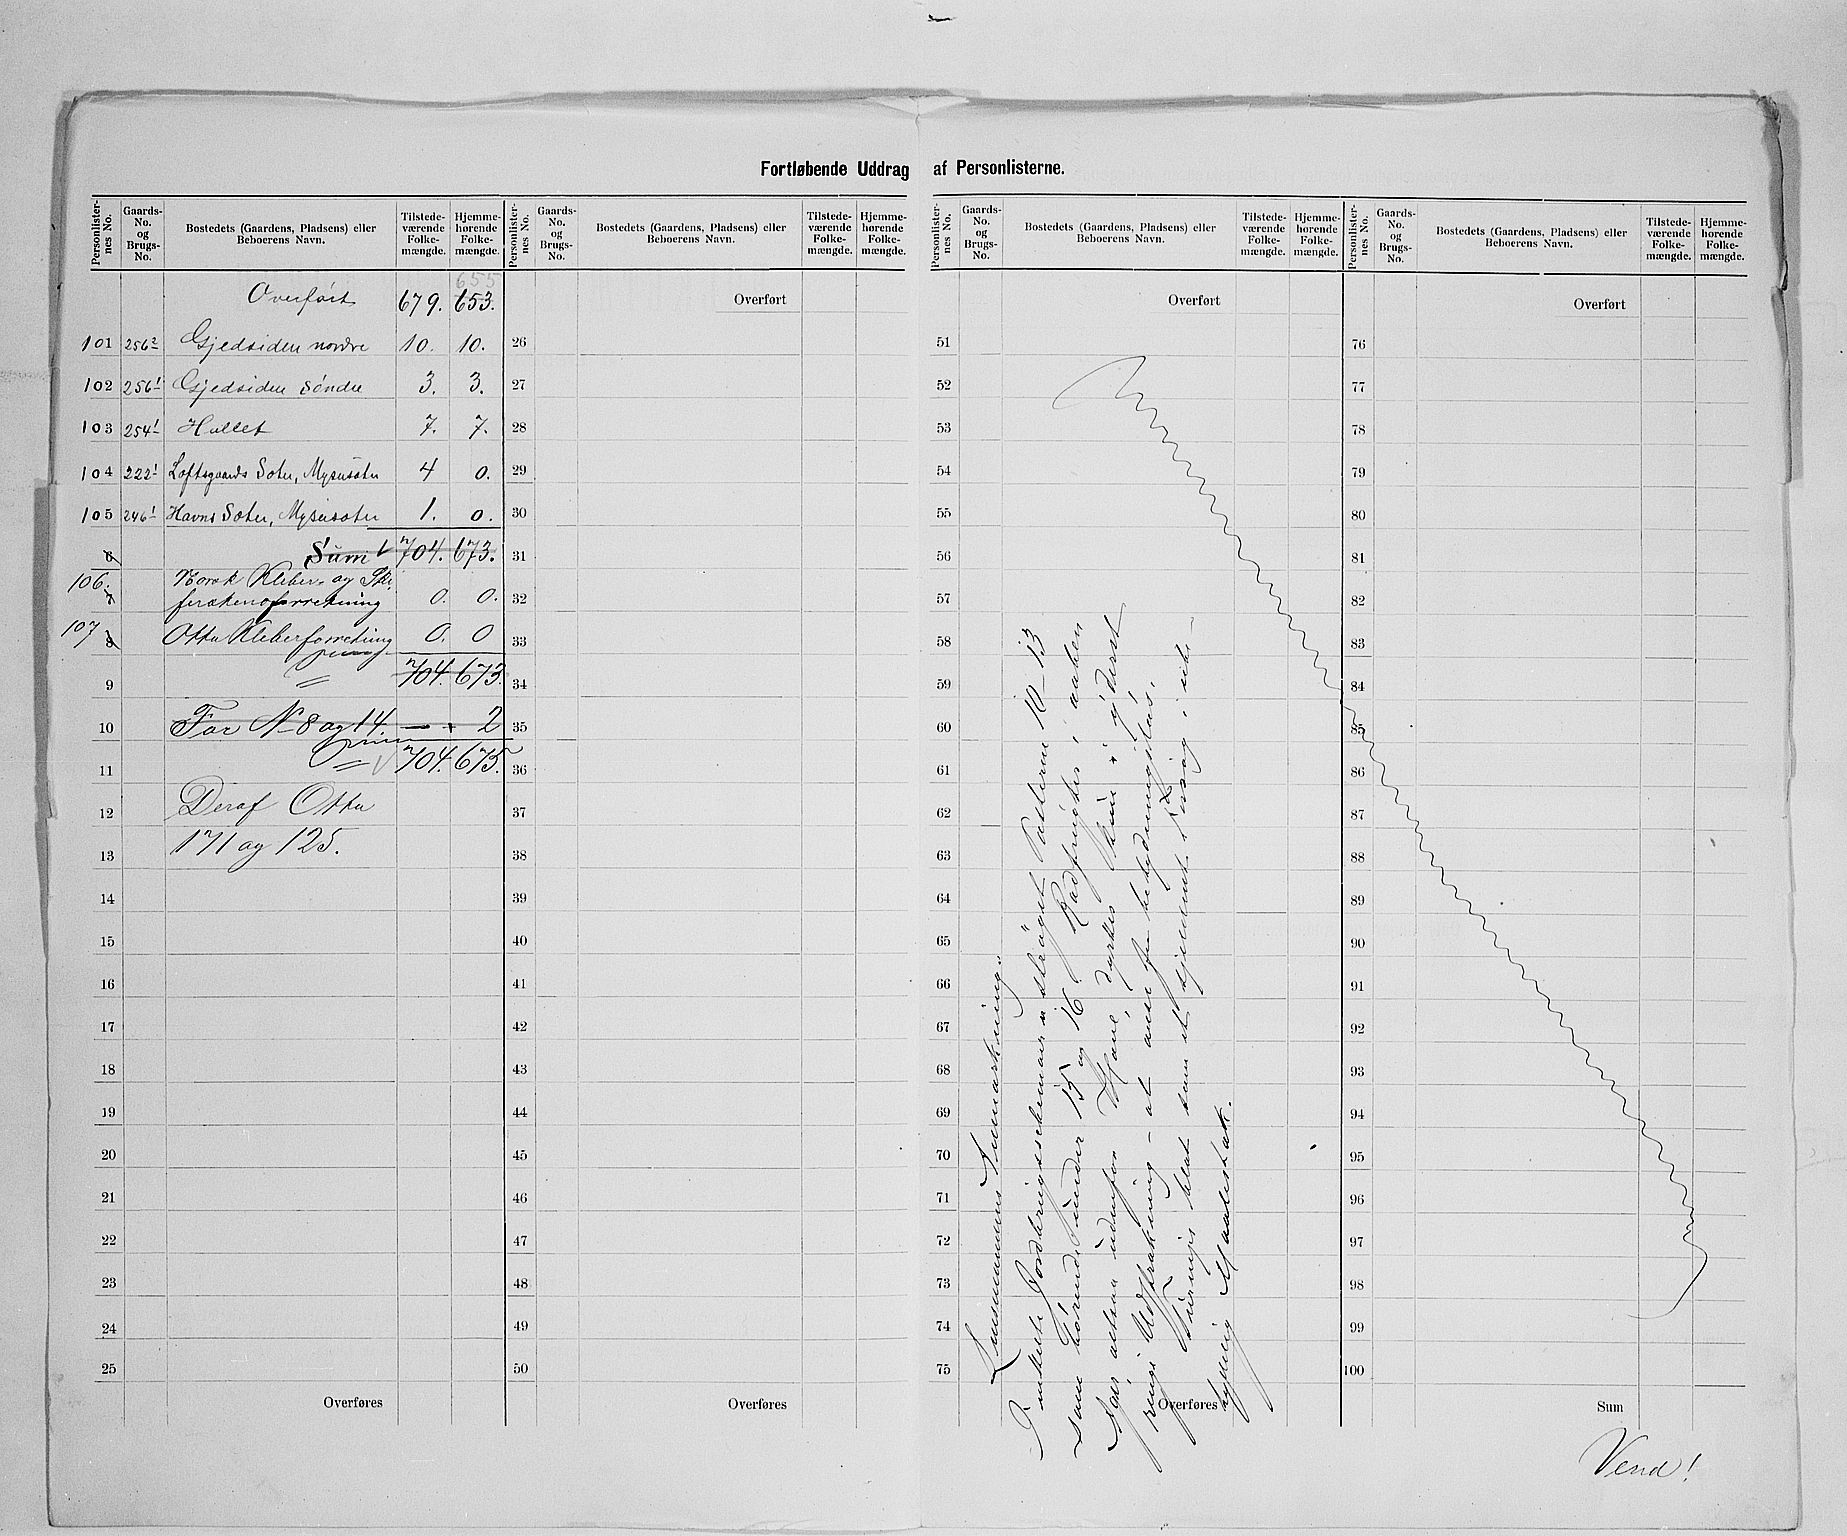 Fortløbende Uddrag af Personlisterne.
Personlister-nes No. Gaards-No. og Brugs-No. Bostedets (Gaardens, Pladsens) eller Beboerens Navn. Tilstede-værende Folke-mængde. Hjemme-hørende Folke-mængde.
655
Overført 679. 653.
101 256² Gjedsiden nordre 10. 10.
102 256¹ Gjedsiden søndre 3. 3.
103 254¹ Hullet 7. 7.
104 222¹ Loftsgaards Sæter, Mysusæter 4 0.
105 246¹ Havns Sæter, Mysusæter 1. 0.
6 Sum 704. 673.
106. Norsk Kleber- og Ski-
7 ferskenoforretning 0. 0.
107 8 Otta Kleberforretning 0. 0
9 704. 673.
10 For N 8 og 14. — + 2
11 704. 675.
12 Deraf Otta
13 171 og 125.
14
15
16
17
18
19
20
21
22
23
24
25
Overføres
Personlister-nes No. Gaards-No. og Brugs-No. Bostedets (Gaardens, Pladsens) eller Beboerens Navn. Tilstede-værende Folke-mængde. Hjemme-hørende Folke-mængde.
Overført
26
27
28
29
30
31
32
33
34
35
36
37
38
39
40
41
42
43
44
45
46
47
48
49
50
Overføres
Personlister-nes No. Gaards-No. og Brugs-No. Bostedets (Gaardens, Pladsens) eller Beboerens Navn. Tilstede-værende Folke-mængde. Hjemme-hørende Folke-mængde.
Overført
51
52
53
54
55
56
57
58
59
60
61
62
63
64
65
66
67
68
69
70
71
72
73
74
75
Overføres
Lensmandens Anmærkning.
I enkelte Jordbrugsskemaer er strøget Posterne 10–13
som hørende under 15 og 16. Radfrugter i aaben
Ager altsaa udenfor Have, dyrkes kun i yderst
ringe Udstrækning – at anse for betydningsløs.
Turnips blot som et sjeldent Forsøg i ube-
tydelig Maalestok.
Personlister-nes No. Gaards-No. og Brugs-No. Bostedets (Gaardens, Pladsens) eller Beboerens Navn. Tilstede-værende Folke-mængde. Hjemme-hørende Folke-mængde.
Overført
76
77
78
79
80
81
82
83
84
85
86
87
88
89
90
91
92
93
94
95
96
97
98
99
100
Sum
Vend!